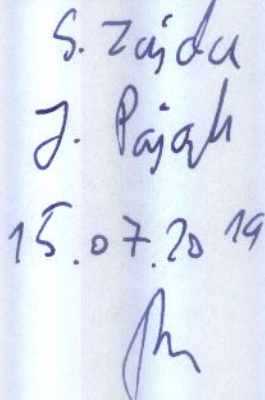 S. Zajda
J. Pająk
15.07.2019